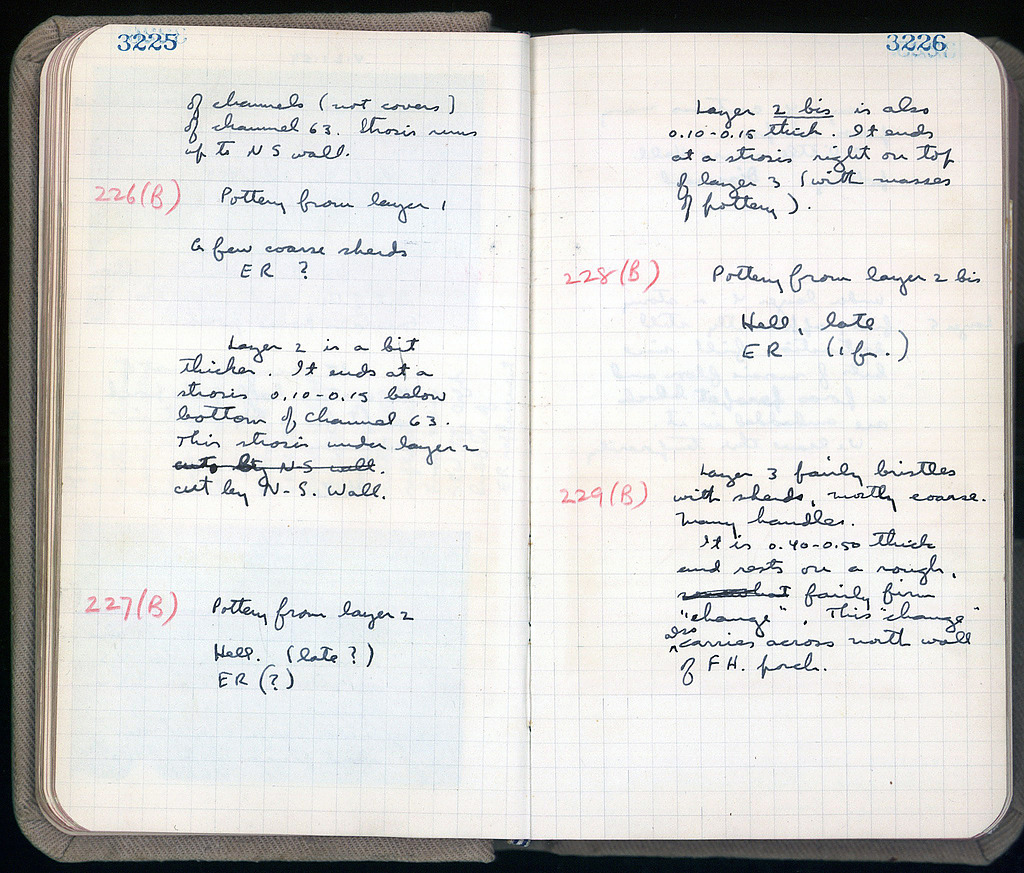 3225
of channels (not covers)
of channel 63. Strosis runs
up to NS wall.
226(B) Pottery from layer 1
A few coarse sherds
ER ?
Layer 2 is a bit
thicker. It ends at a
strosis 0.10-0.15 below
bottom of channel 63.
This strosis under layer 2
cuts by N-S wall.
cut by N-S. Wall.
227(B) Pottery from layer 2
Hell. (late?)
ER (?)
3226
Layer 2 bis is also
0.10-0.15 thick. It ends
at a strosis right on top
of layer 3 (with masses
of pottery).
228(B) Pottery from layer 2 bis
Hell, late
ER (1 fr.)
Layer 3 fairly bristles
229(B) with sherds, mostly coarse.
Many handles.
It is 0.40-0.50 thick
and rests on a rough,
somewhat fairly firm
"change". This "change"
also carries across north wall
of F.H. porch.